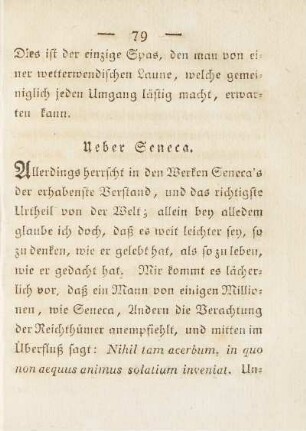 — 79 —
Dies ist der einzige Spas, den man von ei-
ner wetterwendischen Laune, welche gemei-
niglich jeden Umgang lästig macht, erwar-
ten kann.
Ueber Seneca.
Allerdings herrscht in den Werken Seneca's
der erhabenste Verstand, und das richtigste
Urtheil von der Welt; allein bey alledem
glaube ich doch, daß es weit leichter sey, so
zu denken, wie er gelebt hat, als so zu leben,
wie er gedacht hat. Mir kommt es lächer-
lich vor, daß ein Mann von einigen Millio-
nen, wie Seneca, Andern die Verachtung
der Reichthümer anempfiehlt, und mitten im
Überfluß sagt: Nihil tam acerbum, in quo
non aequus animus solatium inveniat. Un-